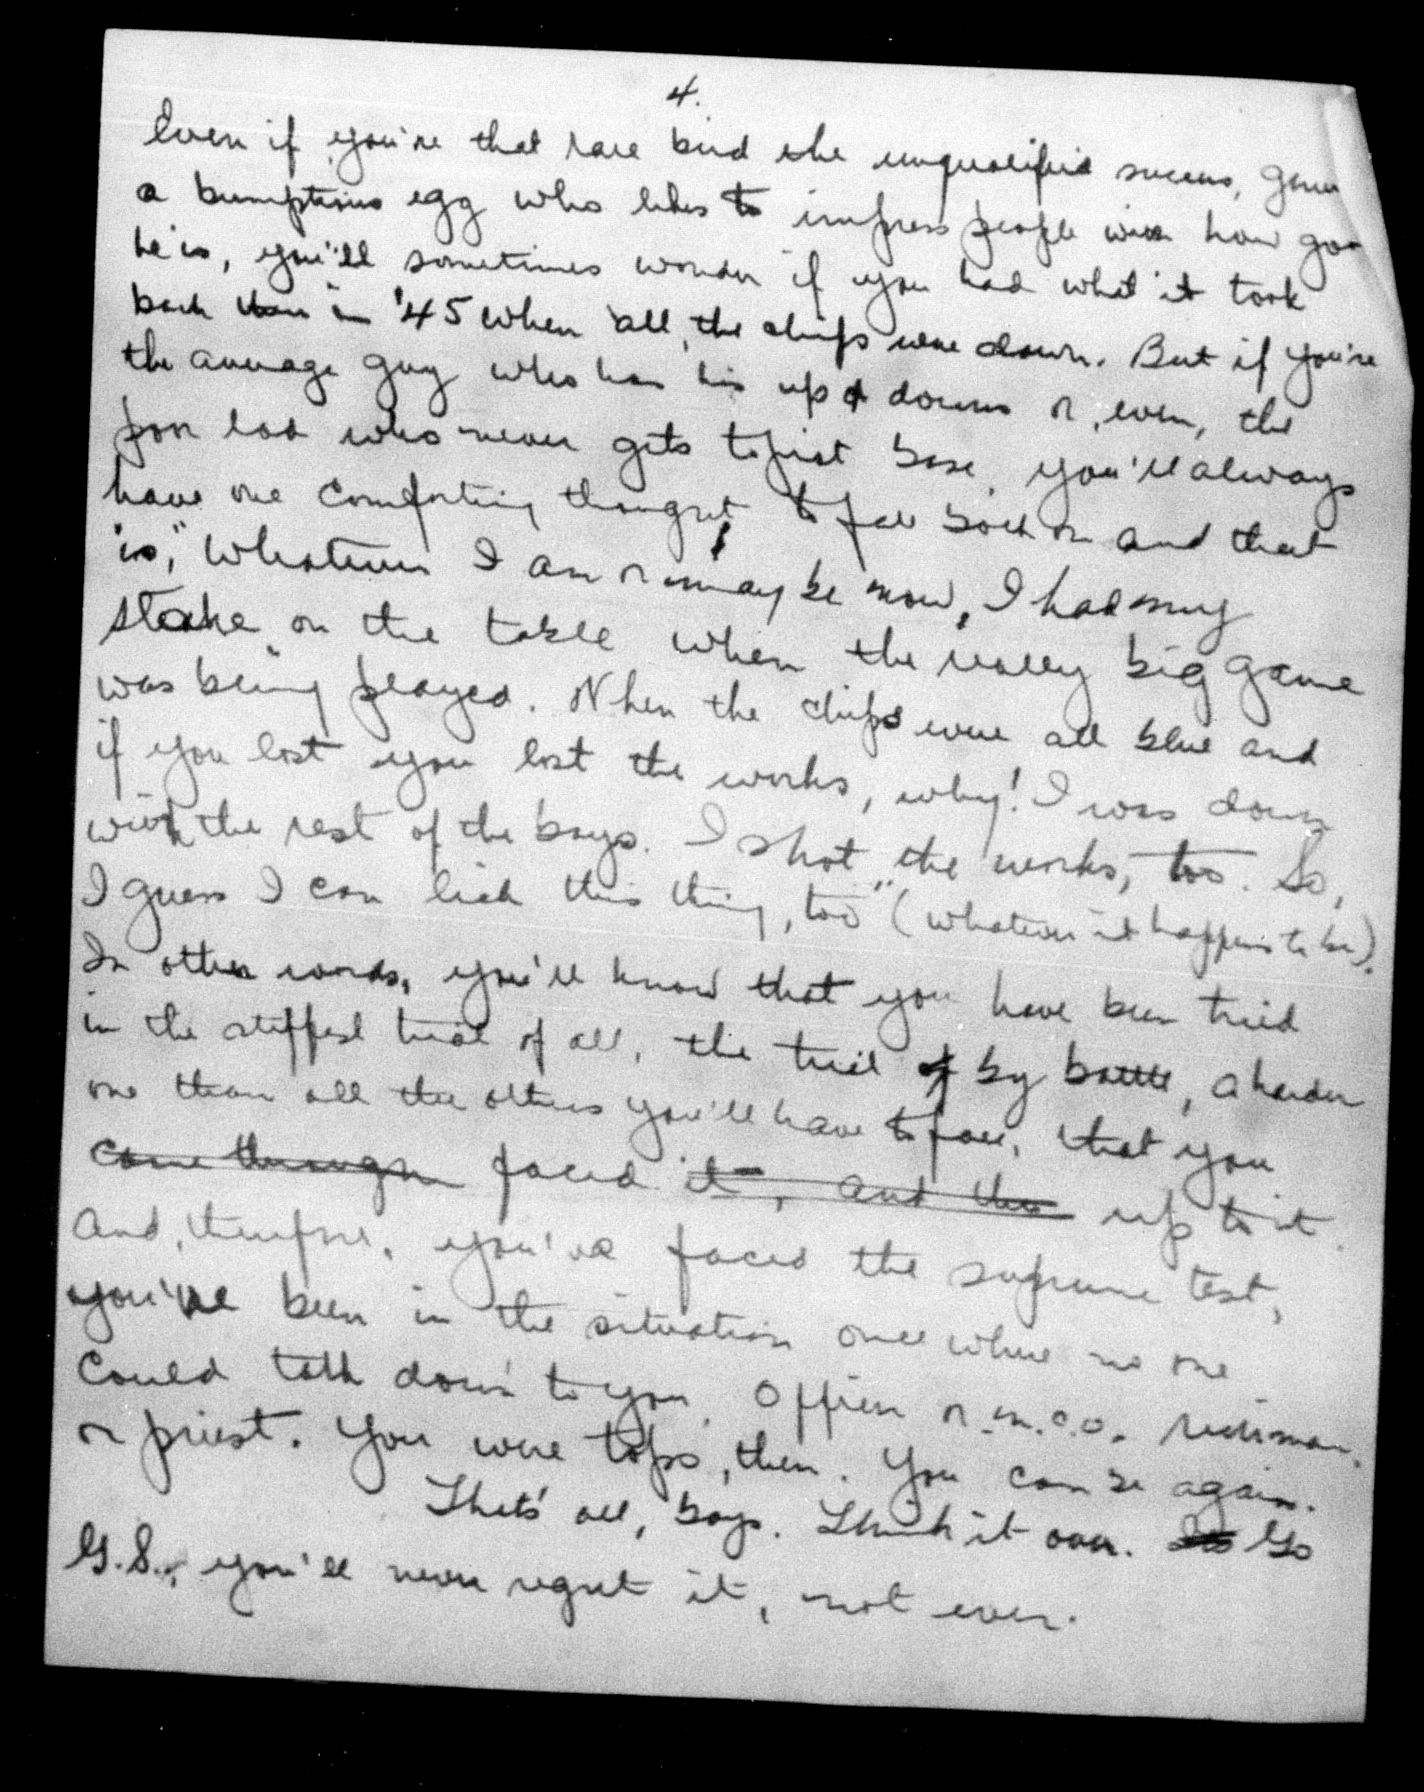 4.
Even if you're that rare bird the unqualified success,
a bumptious egg who likes to impress people with how goo
he is, you'll sometimes wonder if you had what it took
back then in '45 when all the chips were down. But if you're
the average guy who has his up & downs or, even, the
poor lad who never gets to first base, you'll always
have one comforting thought to fall back on and that
is, "Whatever I am or may be now, I had my
stake on the table when the really big game
was being played. When the chips were all blue and
if you lost you lost the works, why! I was down
with the rest of the boys. I shot the works, too. So,
I guess I can lick this thing, too" (whatever it happens to be).
In other words, you'll know that you have been tried
in the stiffest trial of all, the trial of by battle, a harder
one than all the others you'll have to face, that you
came through faced it, and this up to it.
And, therefore, you've faced the supreme test,
you've been in the situation once where no one
could talk down to you, officer or n.c.o., richman,
or priest. You were tops, then. You can be again.
Thats' all, boys. Think it over. Go
G.S., you'll never regret it, not ever.